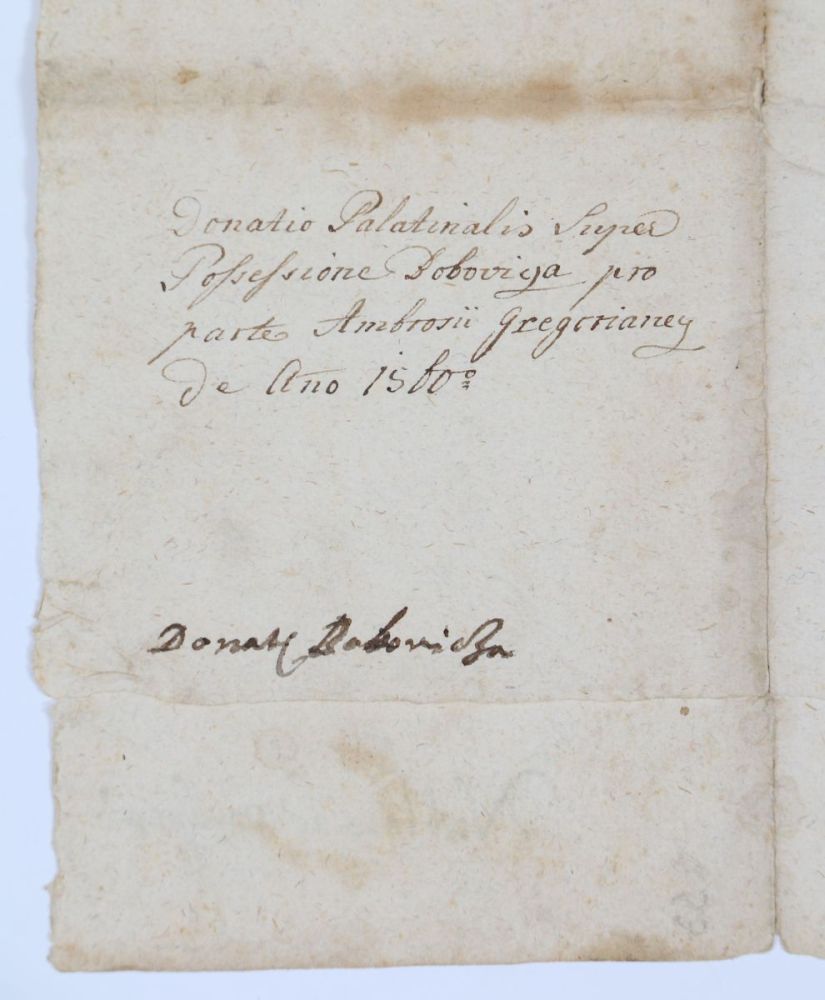 Donatio Palatinalis Super
Possessione Doboviza pro
parte Ambrosii Gregorianey
De Año 1560º
Donat Bobovicza